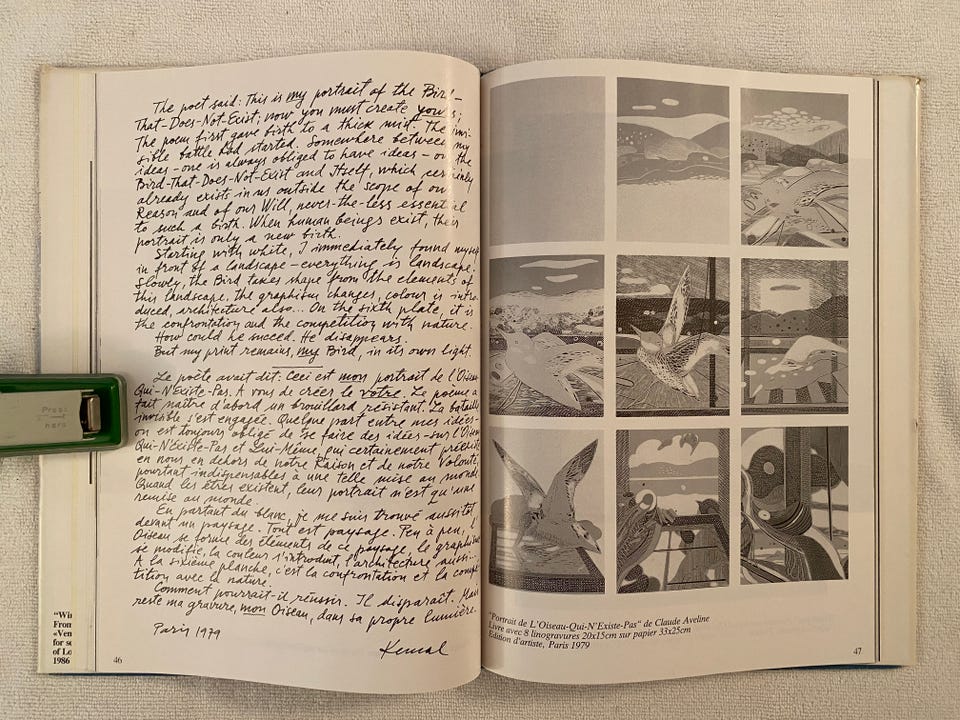 The poet said: This is my portrait of the Bird-
That-Does-Not-Exist; now you must create yours;
The poem first gave birth to a thick mist. The invi-
sible battle had started. Somewhere between my
ideas - one is always obliged to have ideas - on the
Bird-That-Does-Not-Exist and Itself, which certainly
already exists in us outside the scope of our
Reason and of our Will, never-the-less essential
to such a birth. When human beings exist, their
portrait is only a new birth.
Starting with white, I immediately found myself
in front of a landscape - everything is landscape.
Slowly, the Bird takes shape from the elements of
this landscape. the graphism changes, colour is intro-
duced, architecture also... On the sixth plate, it is
the confrontation and the competition with nature.
How could he succeed. He disappears.
But my print remains, my Bird, in its own light.
Le poète avait dit: Ceci est mon portrait de l'Oiseau-
Qui-N'Existe-Pas. A vous de créer le vôtre. Le poème a
fait naître d'abord un brouillard résistant. La bataille
invisible s'est engagée. Quelque part entre mes idées -
on est toujours obligé de se faire des idées - sur l'Oiseau
Qui-N'Existe-Pas et Lui-Même, qui certainement préexiste
en nous en dehors de notre Raison et de notre Volonté,
pourtant indispensables à une telle mise au monde.
Quand les êtres existent, leur portrait n'est qu'une
remise au monde.
En partant du blanc, je me suis trouvé aussitôt
devant un paysage. Tout est paysage. Peu à peu, l'
Oiseau se forme des éléments de ce paysage, le graphisme
se modifie, la couleur s'introduit, l'architecture aussi...
A la sixième planche, c'est la confrontation et la compé-
tition avec la nature.
Comment pourrait-il réussir. Il disparaît. Mais
reste ma gravure, mon Oiseau, dans sa propre lumière.
Paris 1979
Kemal
46
"Portrait de L'Oiseau-Qui-N'Existe-Pas" de Claude Aveline
Livre avec 8 linogravures 20x15cm sur papier 33x25cm
Edition d'artiste, Paris 1979
47
"Wi
From
«Ven
for se
of Lo
1986
Press
here